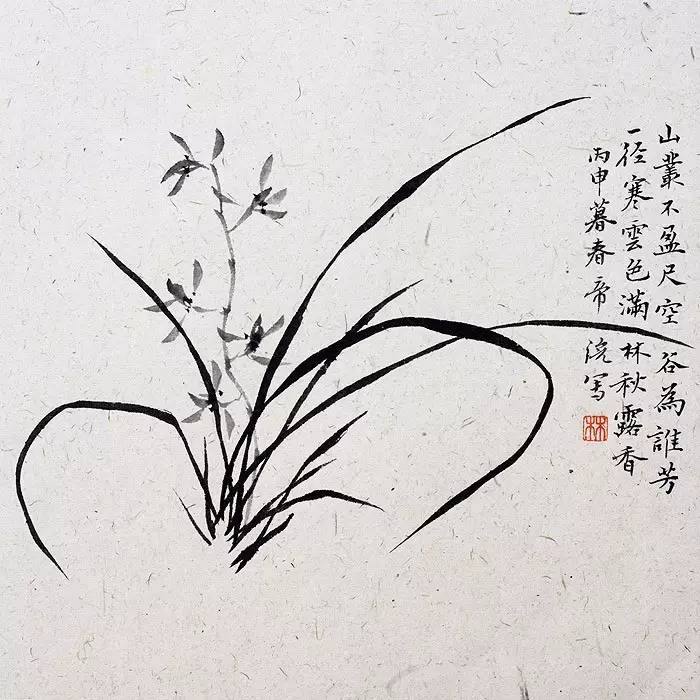 山叢不盈尺空谷為誰芳
一徑寒雲色滿林秋露香
丙申暮春帝浣寫
林